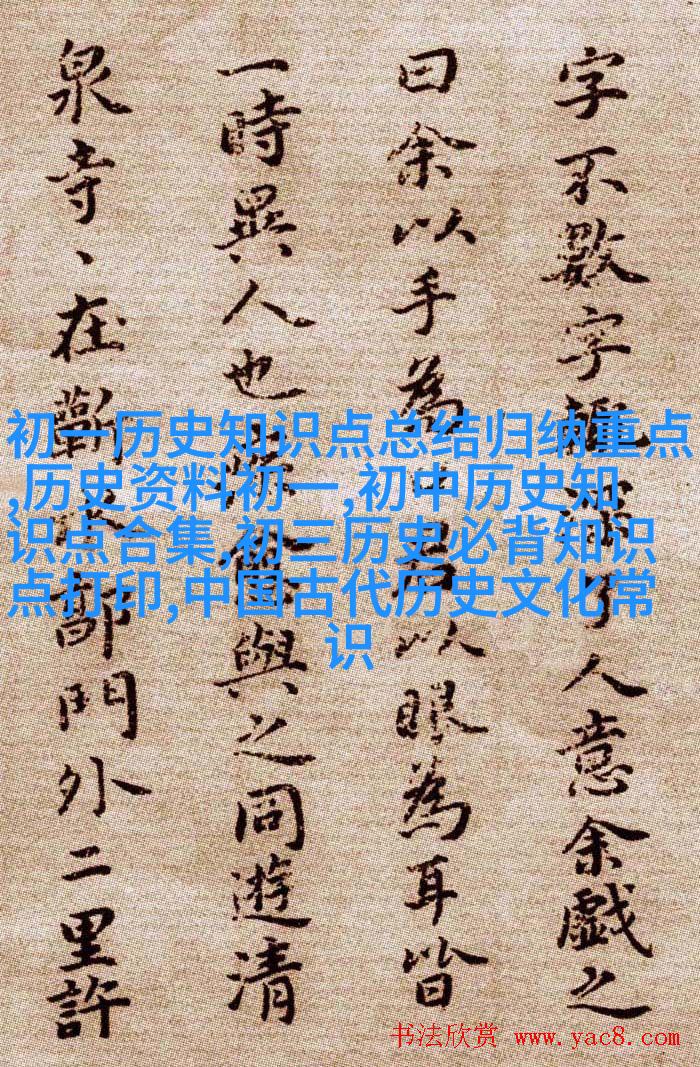 字不數字了人意余戲之
曰余以手為口君以眼為耳皆
一時異人也與之同遊清
泉寺、在蘄水郭門外二里許
初一历史知识点总结归纳重点
,历史资料初一,初中历史知
识点合集,初三历史必背知识
点打印,中国古代历史文化常
识
书法欣赏 www.yac8.com